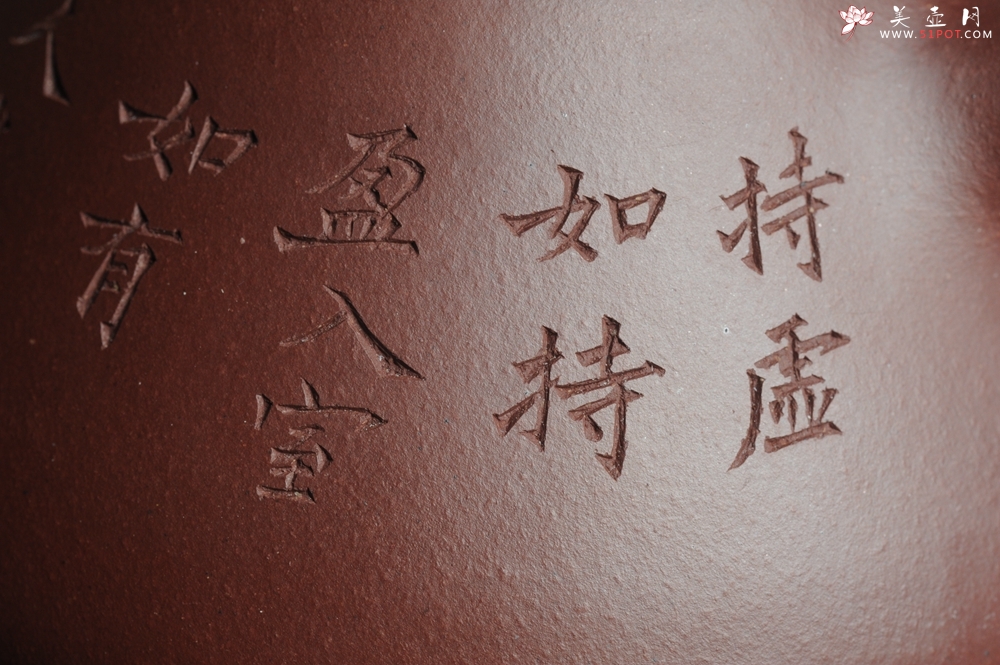 持虚
如持
盈入室
如有
人
美壶网
WWW.51POT.COM